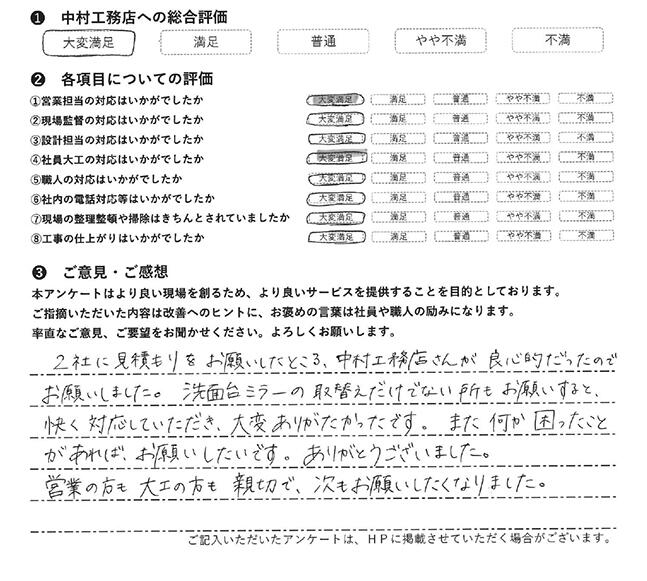 ❶ 中村工務店への総合評価
大変満足 満足 普通 やや不満 不満
❷ 各項目についての評価
①営業担当の対応はいかがでしたか 大変満足 満足 普通 やや不満 不満
②現場監督の対応はいかがでしたか 大変満足 満足 普通 やや不満 不満
③設計担当の対応はいかがでしたか 大変満足 満足 普通 やや不満 不満
④社員大工の対応はいかがでしたか 大変満足 満足 普通 やや不満 不満
⑤職人の対応はいかがでしたか 大変満足 満足 普通 やや不満 不満
⑥社内の電話対応等はいかがでしたか 大変満足 満足 普通 やや不満 不満
⑦現場の整理整頓や掃除はきちんとされていましたか 大変満足 満足 普通 やや不満 不満
⑧工事の仕上がりはいかがでしたか 大変満足 満足 普通 やや不満 不満
❸ ご意見・ご感想
本アンケートはより良い現場を創るため、より良いサービスを提供することを目的としております。
ご指摘いただいた内容は改善へのヒントに、お褒めの言葉は社員や職人の励みになります。
率直なご意見、ご要望をお聞かせください。よろしくお願いします。
2社に見積もりをお願いしたところ、中村工務店さんが良心的だったので
お願いしました。洗面台ミラーの取替えだけでない所もお願いすると、
快く対応していただき、大変ありがたかったです。また何か困ったこと
があれば、お願いしたいです。ありがとうございました。
営業の方も大工の方も親切で、次もお願いしたくなりました。
ご記入いただいたアンケートは、HPに掲載させていただく場合がございます。